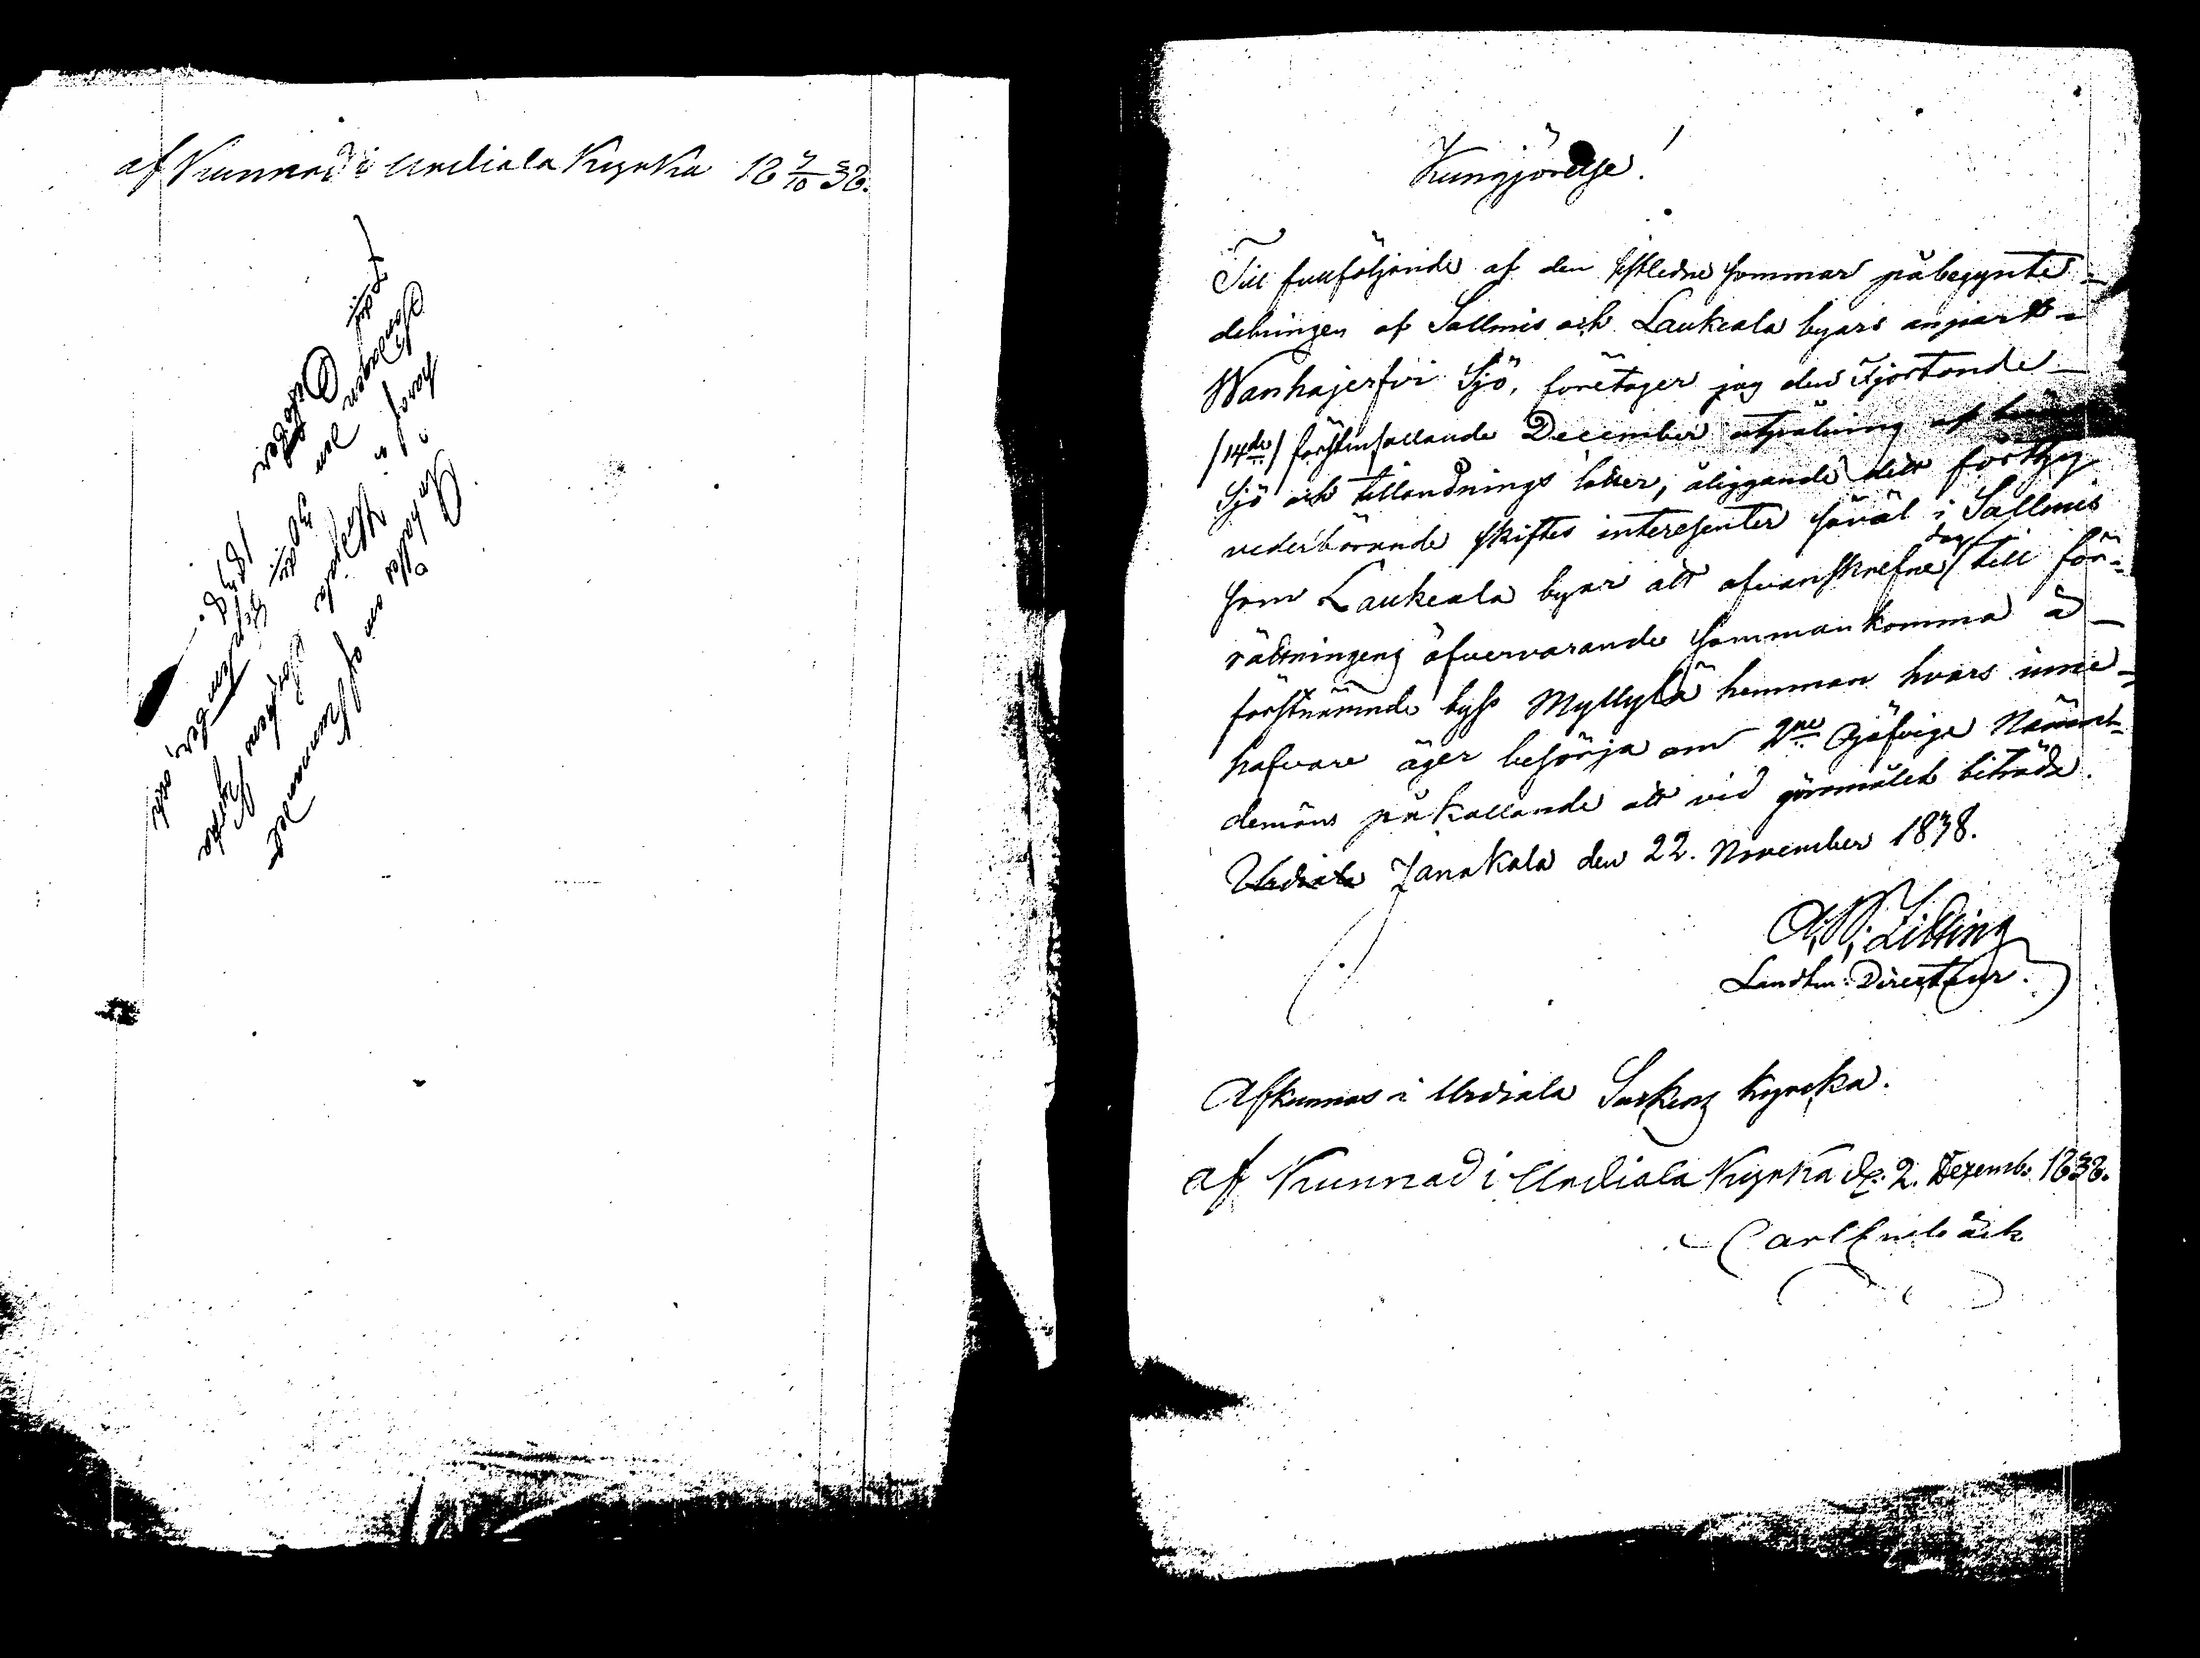 af Kunnad i Urdiala Kyrka 18 7/10 38.
Anhålles om afkunnandet
häraf i Kyrka
Söndagen den 30de September, och
7de October
1838.
Kungjörelse!
Till fullföljande af den sistledne sommar påbegynte
delningen af Sallmis och Laukeala byars anpart i
Wanhajerfvi Sjö, företager jag den Fjortonde
(14de) förstinfallande December utstakning af
Sjö och tillandnings lotter, åliggande det förthy
vederbörande skiftes interessenter såväl i Sallmis
som Laukeala byar att ofvanskrefne dag till för-
rättningens öfvervarande sammankomma å
förstnämnde bys Myllylä hemman hvars inne-
hafvare äger besörja om 2ne Ojäfvige Nämnd-
demäns påkallande att vid göromålet biträda.
Urdiala Janakala den 22. November 1838.
A. W. Lilling
Landtm: Directeur.
Afkunnas i Urdiala Sockens kyrcka.
af Kunnad i Urdiala Kyrka d. 2. Dezemb. 1838.
Carl Enebäck